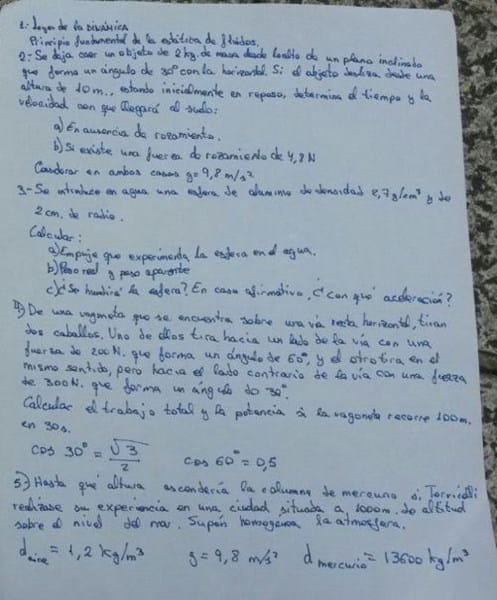 1.- Leyes de la DINÁMICA
Principio fundamental de la estática de fluidos.
2.- Se deja caer un objeto de 2 kg. de masa desde lo alto de un plano inclinado
que forma un ángulo de 30° con la horizontal. Si el objeto desliza desde una
altura de 10 m., estando inicialmente en reposo, determina el tiempo y la
velocidad con que llegará al suelo:
a) En ausencia de rozamiento.
b) Si existe una fuerza de rozamiento de 4,8 N
Considerar en ambos casos g = 9,8 m/s²
3.- Se introduce en agua una esfera de aluminio de densidad 2,7 g/cm³ y de
2 cm. de radio.
Calcular:
a) Empuje que experimenta la esfera en el agua.
b) Peso real y peso aparente
c) ¿Se hundirá la esfera? En caso afirmativo, ¿con qué aceleración?
4) De una vagoneta que se encuentra sobre una vía recta horizontal, tiran
dos caballos. Uno de ellos tira hacia un lado de la vía con una
fuerza de 200 N. que forma un ángulo de 60°, y el otro tira en el
mismo sentido, pero hacia el lado contrario de la vía con una fuerza
de 300 N. que forma un ángulo de 30°.
Calcular el trabajo total y la potencia si la vagoneta recorre 100 m.
en 30 s.
cos 30° = √3/2 cos 60° = 0,5
5.) Hasta qué altura ascendería la columna de mercurio si Torricelli
realizase su experiencia en una ciudad situada a 1000 m. de altitud
sobre el nivel del mar. Supón homogénea la atmósfera.
d aire = 1,2 kg/m³ g = 9,8 m/s² d mercurio = 13600 kg/m³